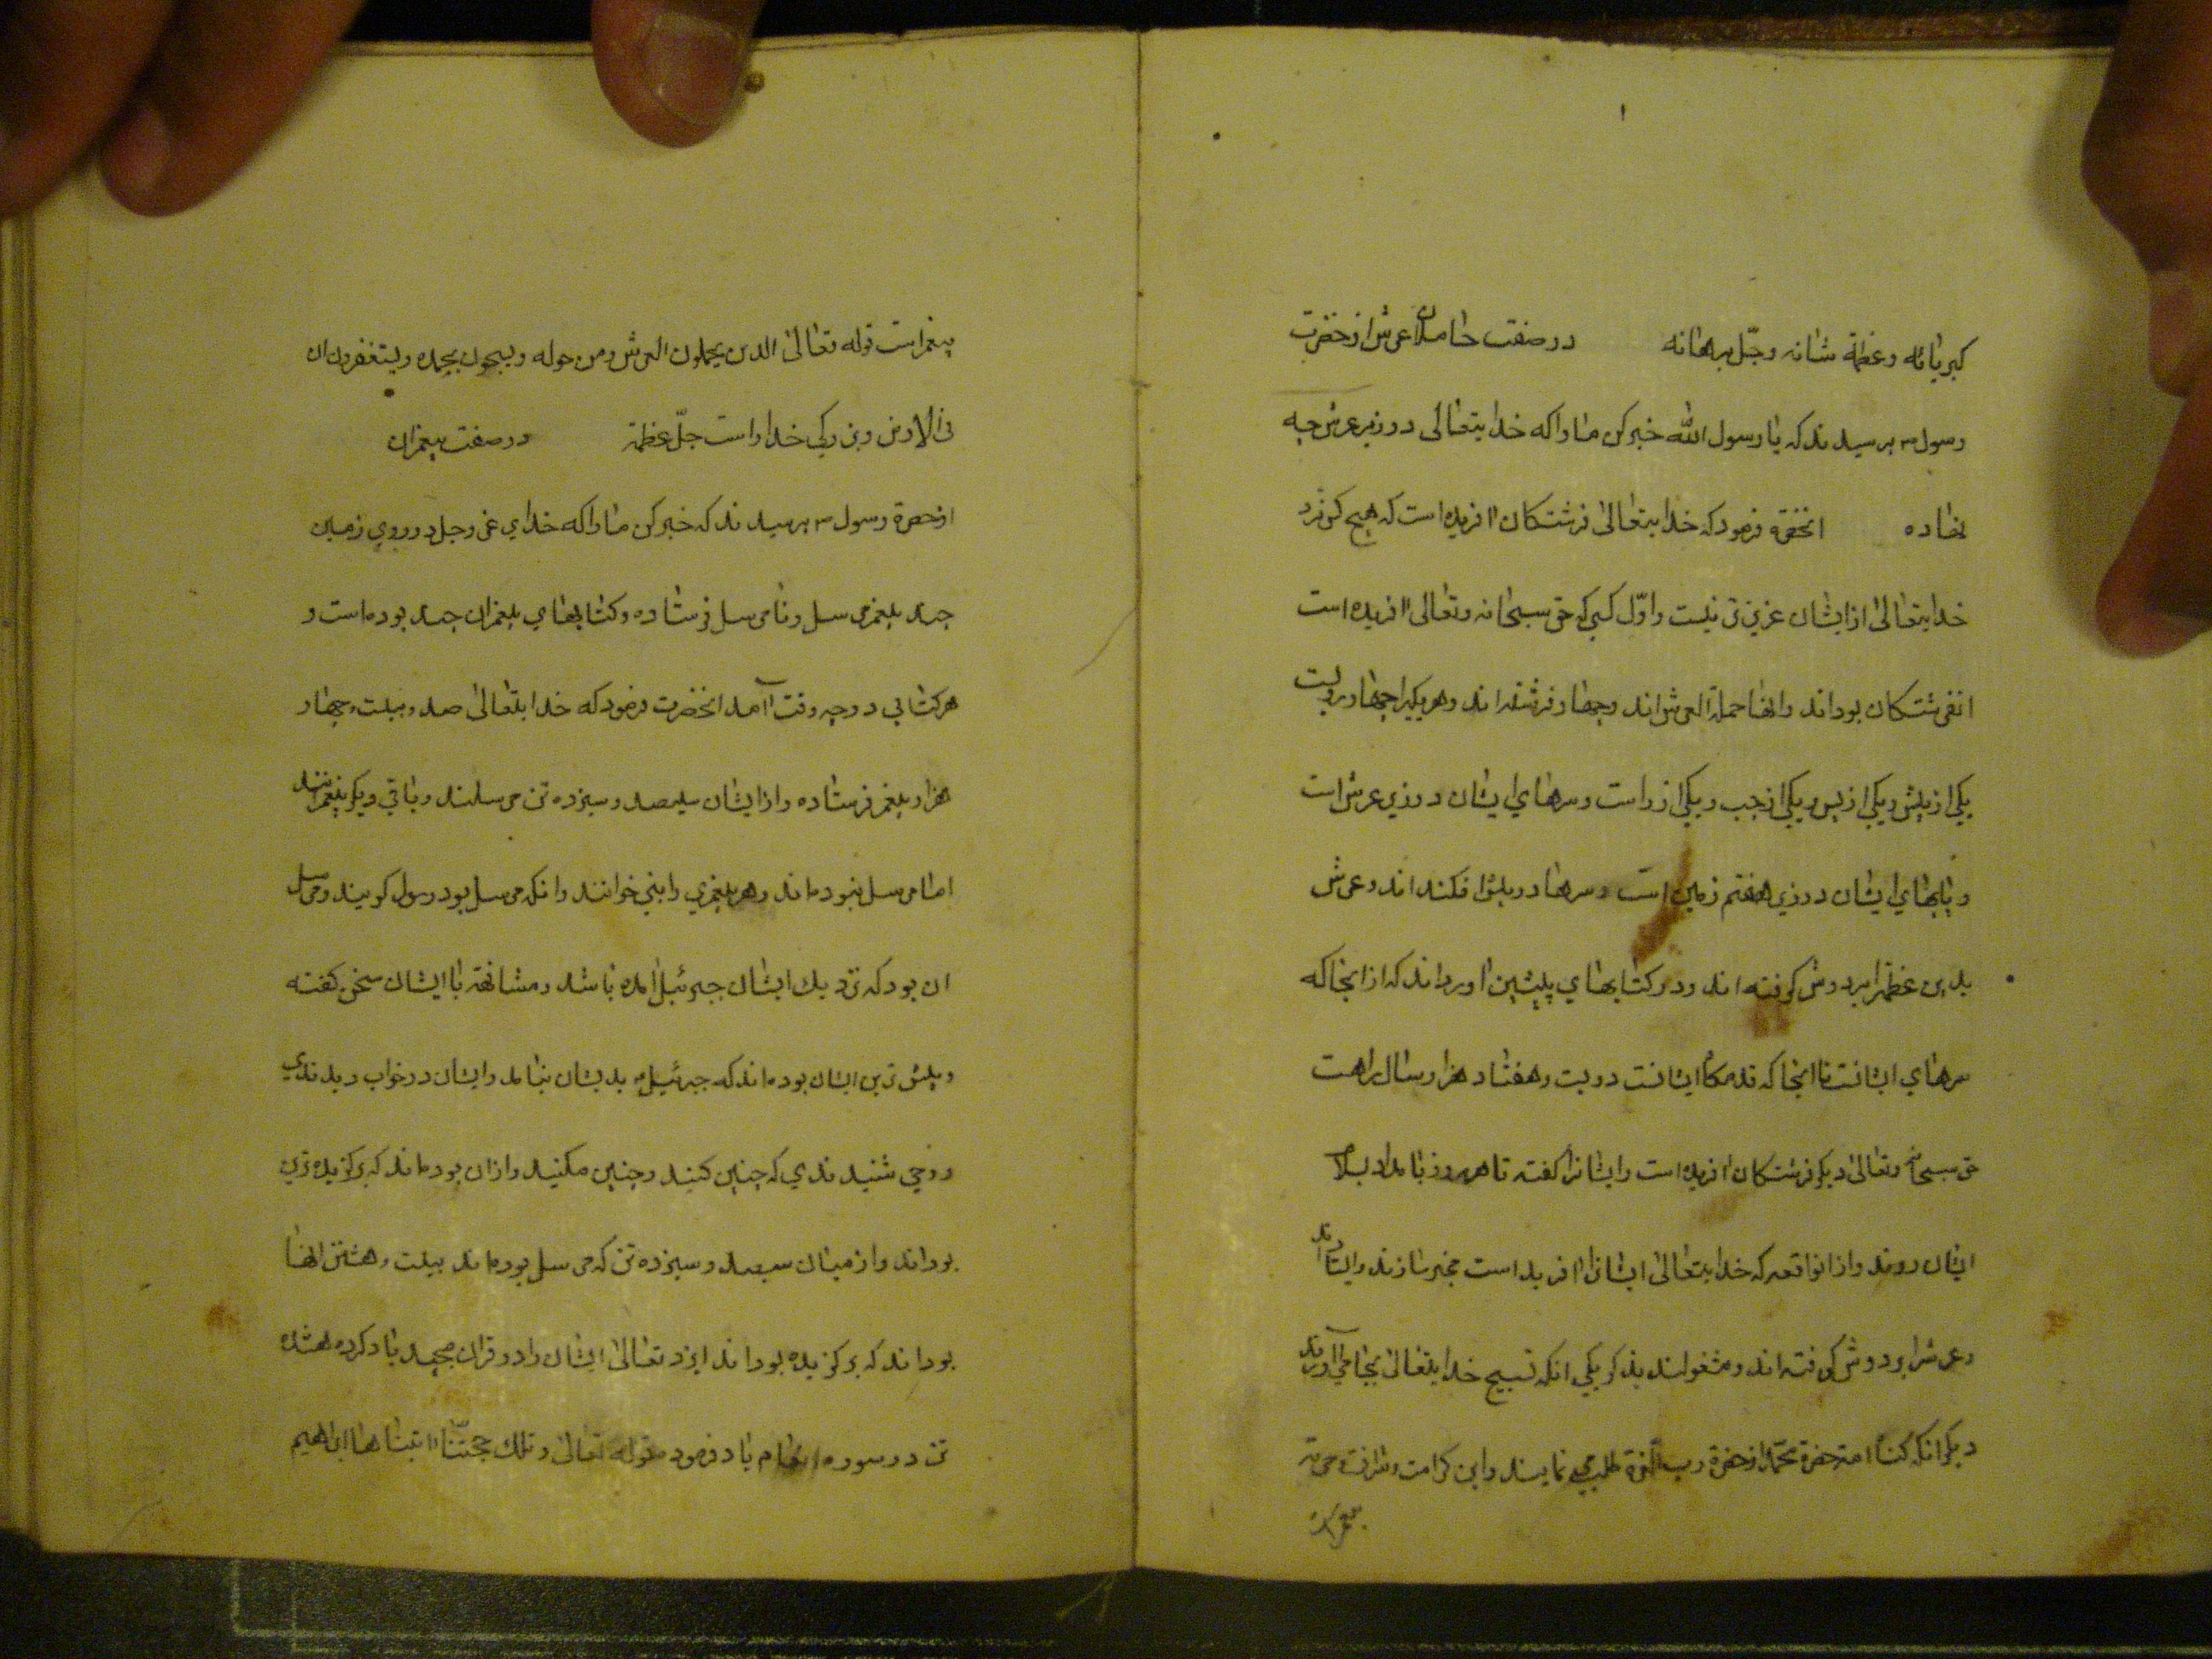 کبریائه وعظمة شانه وجلّ برهانه در صفت حاملان عرش از حضرت
رسول م پرسیدند که یا رسول الله خبر کن ما را که خدایتعالی در زیر عرش چه
نهاده انحضرة فرمود که خدایتعالی فرشتکان افریده است که هیچ کس نزد
خدایتعالی از ایشان عزیزتر نیست و اوّل کسی که حق سبحانه وتعالی افریده است
ان فرشتکان بود اند و انها حملة العرش اند و چهار فرشته اند و هر یکیرا چهار رویست
یکی از پیش و یکی از پس و یکی از چپ و یکی از راست و سرهای ایشان در زیر عرش است
و پایهای ایشان در زیر هفتم زمین است و سرها در پیش افکنده اند و عرش
بدین عظمة را بر دوش کرفته اند و در کتابهای پیشین اورد اند که از انجا که
سرهای ایشانست تا انجا که قدمکاه ایشانست دویست و هفتاد هزار سال راهست
حق سبحانه وتعالی دیکر فرشتکان افریده است و ایشانرا کفته تا هر روز بامداد بسلام
ایشان روند و از انواقعه که خدایتعالی ایشانرا افریده است مخبر سازند و ایستاده اند
و عرش را بر دوش کرفته اند و مشغولند بذکر یکی انکه تسبیح خدایتعالی بجا می آورند
دیکر انکه کناه امة حضرة محمّد از حضرة رب العزة طلب می نمایند و این کرامت و شرافة و حرمة
پیغمبر است قوله تعالی الذین یحملون العرش ومن حوله ویسبحون بحمده ویستغفرون لمن
فی الارض وبزرکی خدا راست جلّ عظمة در صفت پیغمبران
از حضرة رسول م پرسیدند که خبر کن ما را که خدای عز وجل در روی زمین
چند پیغمبر مرسل و نامرسل فرستاده و کتابهای پیغمبران چند بوده است و
هر کتابی در چه وقت آمد انحضرت فرمود که خدایتعالی صد و بیست و چهار
هزار پیغمبر فرستاده و از ایشان سیصد و سیزده تن مرسلند و باقی دیکر پیغمبرانند
اما مرسل نبوده اند و هر پیغمبری را نبی خوانند و انکه مرسل بود رسول کویند و مرسل
ان بود که نزدیك ایشان جبرئیل امده باشد و مشافهة با ایشان سخن کفته
و پیش ترین ایشان بوده اند که جبرئیل بدیشان نیامد و ایشان در خواب دیدندی
و وحی شنیدندی که چنین کنید و چنین مکنید و از ان بوده اند که برکزیده ترین
بود اند و از میان سیصد و سیزده تن که مرسل بوده اند بیست و هشت تن انها
بود اند که برکزیده بود اند ایزد تعالی ایشان را در قران مجید یاد کرده هشده
تن در سوره انعام یاد فرمود قوله تعالی وتلك حجّتنا اتیناها ابراهیم